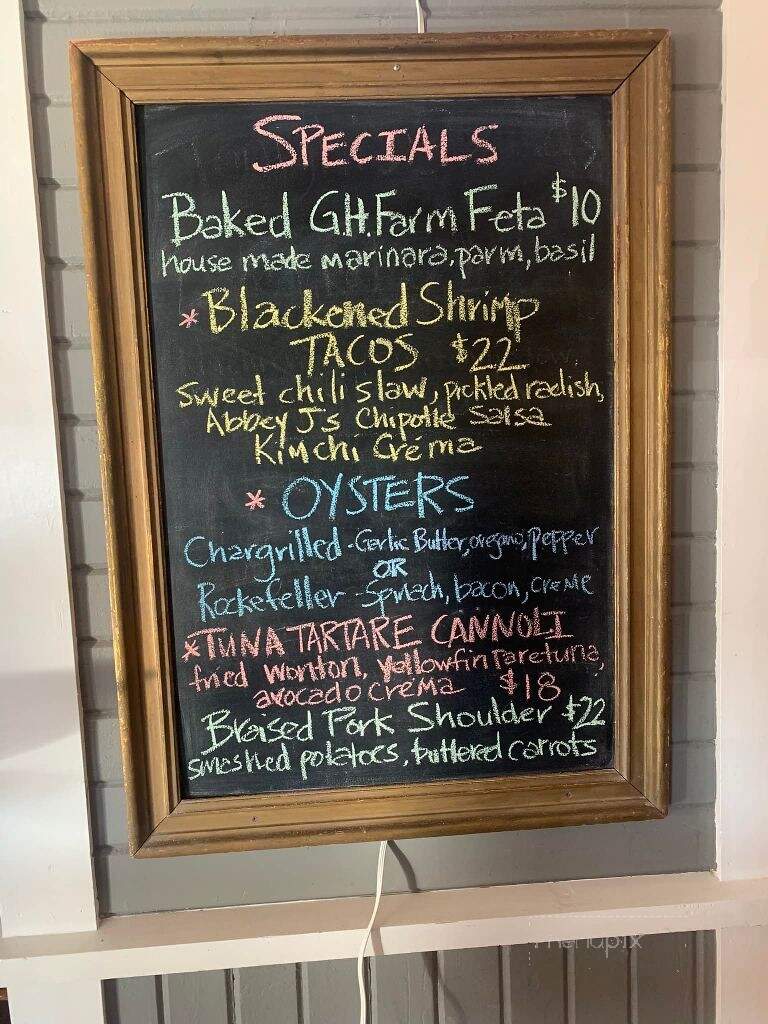 SPECIALS
Baked G.H. Farm Feta $10
house made marinara, parm, basil
* Blackened Shrimp
TACOS $22
Sweet chili slaw, pickled radish,
Abbey J's Chipotle Salsa
Kimchi Créma
* OYSTERS
Chargrilled - Garlic Butter, oregano, pepper
OR
Rockefeller - Spinach, bacon, creme
* TUNA TARTARE CANNOLI
fried wonton, yellowfin rare tuna,
avocado crema $18
Braised Pork Shoulder $22
smashed potatoes, buttered carrots
menupix